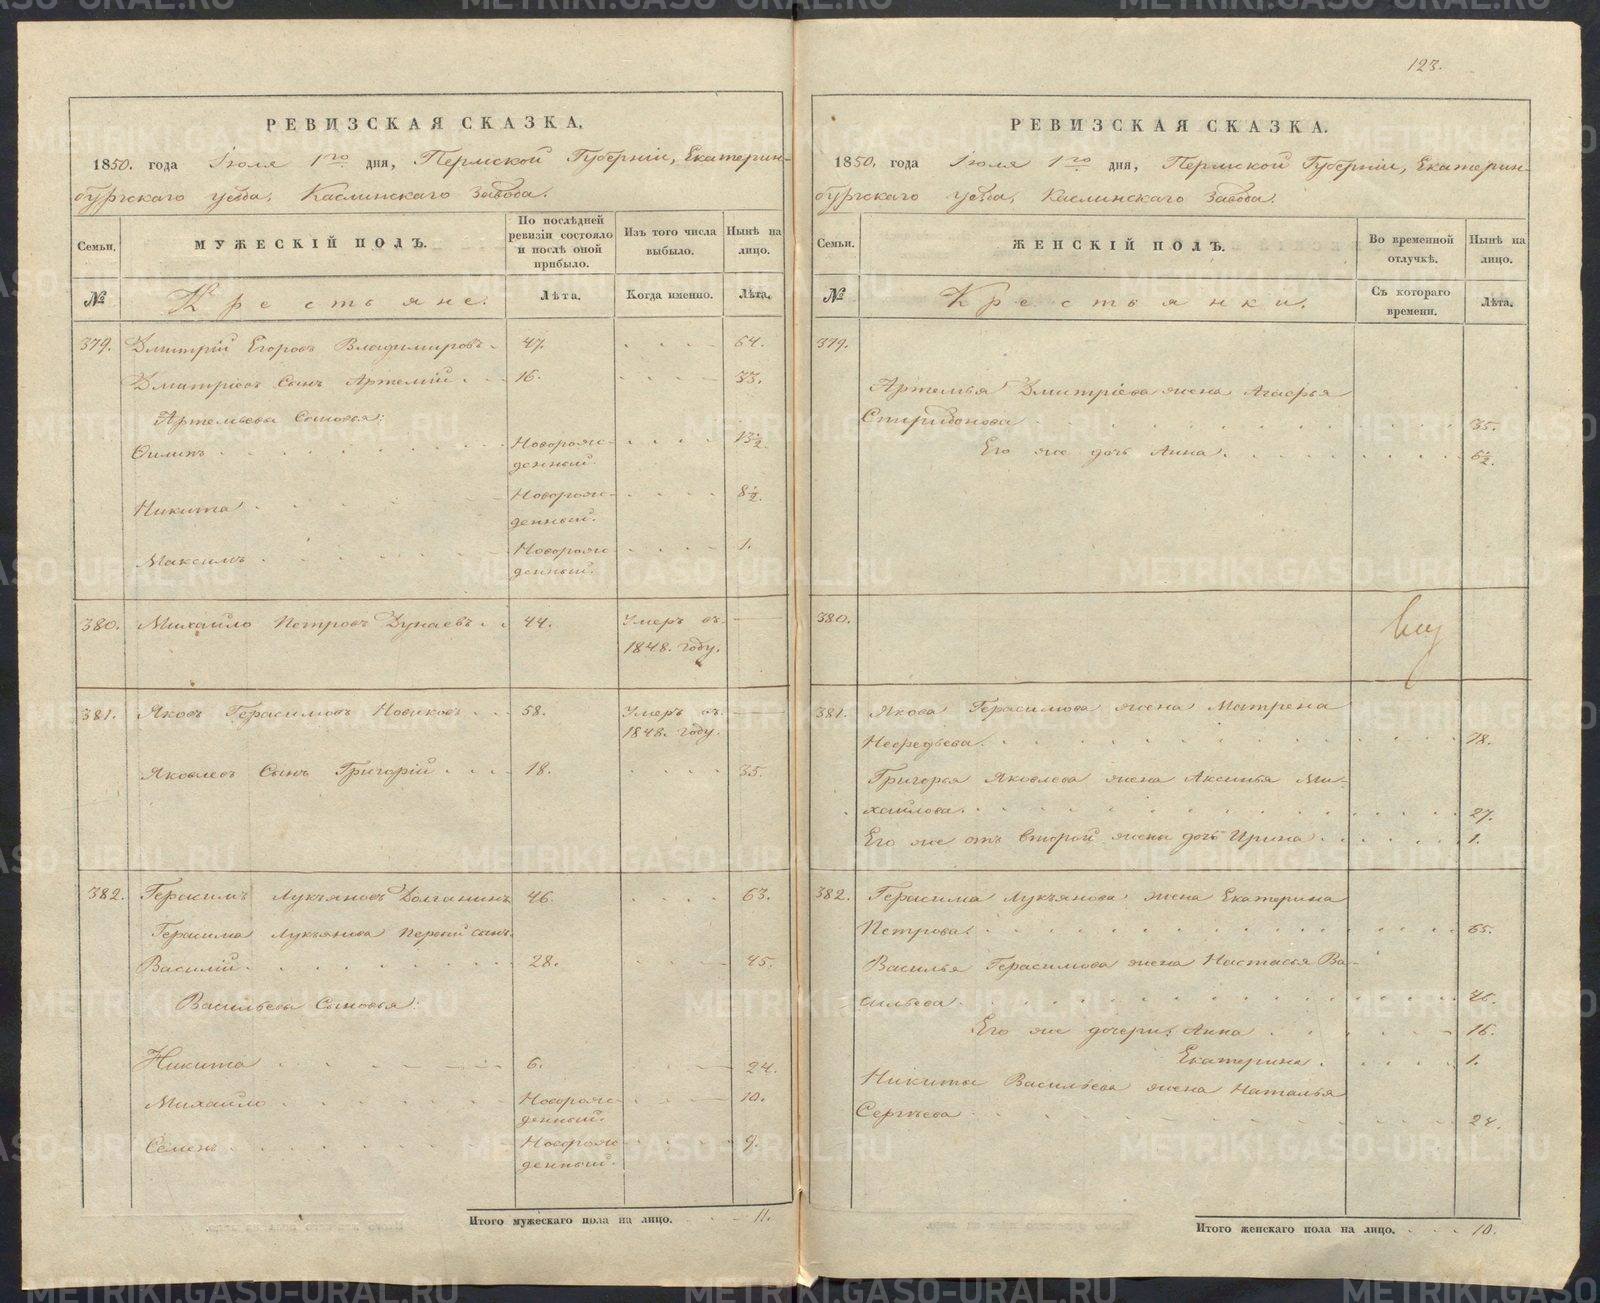 123.
РЕВИЗСКАЯ СКАЗКА.
1850. года Іюля 1го дня, Пермской Губерніи, Екатерин-
бургскаго уезда, Каслинскаго Завода.
Семьи.
МУЖЕСКІЙ ПОЛЪ.
По послѣдней ревизіи состояло и послѣ оной прибыло.
Изъ того числа выбыло.
Нынѣ на лицо.
№
Крестьяне.
Лѣта.
Когда именно.
Лѣта.
379. Дмитрій Егоровъ Владимировъ. 47. 64.
Дмитріевъ Сынъ Артемій. 16. 33.
Артемьевы Сыновья:
Филипъ. Новорож- 13½.
денный.
Никита Новорож- 8½.
денный.
Максимъ Новорож- 1.
денный.
380. Михайло Петровъ Дунаевъ. 44. Умеръ въ
1848. году.
381. Яковъ Герасимовъ Новиковъ 58. Умеръ въ
1848. году.
Яковлевъ Сынъ Григорій. 18. 35.
382. Герасимъ Лукъяновъ Долганинъ 46. 63.
Герасима Лукъянова первый сынъ
Василій. 28. 45.
Васильевы Сыновья:
Никита 6. 24.
Михайло Новорож- 10.
денный.
Семенъ Новорож- 9.
денный.
Итого мужескаго пола на лицо. 11.
РЕВИЗСКАЯ СКАЗКА.
1850. года Іюля 1го дня, Пермской Губерніи, Екатерин-
бургскаго уезда, Каслинскаго Завода.
Семьи.
ЖЕНСКІЙ ПОЛЪ.
Во временной отлучкѣ.
Нынѣ на лицо.
№
Крестьянки.
Съ котораго времени.
Лѣта.
379.
Артемья Дмитріева жена Агафья
Спиридонова 35.
Его же дочь Анна. 6½.
380.
381. Якова Герасимова жена Матрена
Нефедьева. 78.
Григорья Яковлева жена Аксинья Ми-
хайлова. 27.
Его же отъ второй жены дочь Ирина 1.
382. Герасима Лукъянова жена Екатерина
Петрова. 65.
Василья Герасимова жена Настасья Ва-
сильева. 46.
Его же дочери: Анна 16.
Екатерина. 1.
Никиты Васильева жена Наталья
Сергѣева 24.
Итого женскаго пола на лицо. 10.
METRIKI.GASO-URAL.RU